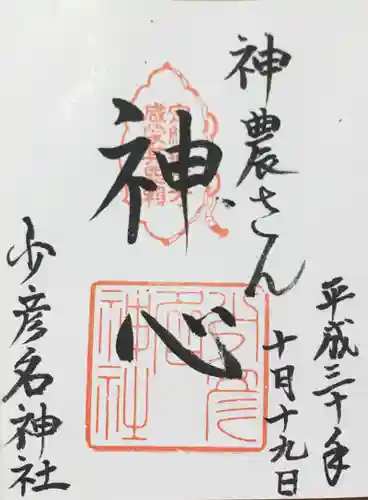 神農さん
神心
平成三十年
十月十九日
少彦名神社
少彦名神社